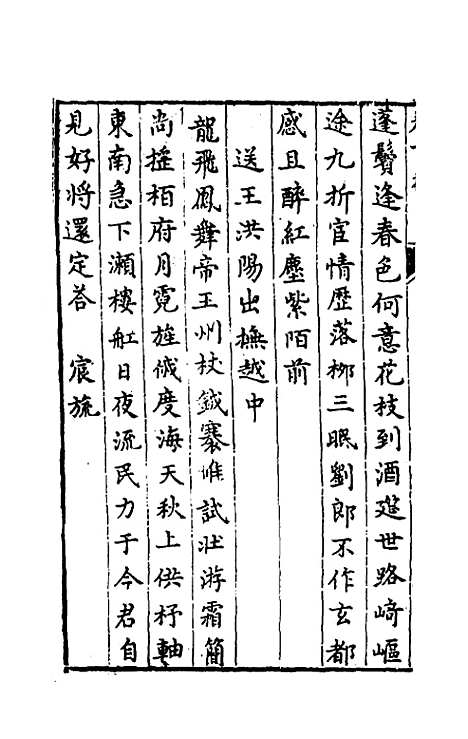 蓬鬢逢春色何意花枝到酒筵世路崎嶇
途九折官情歷落柳三眠劉郎不作玄都
感且醉紅塵紫陌前
送王洪陽出撫越中
龍飛鳳舞帝王州杖鉞褰帷試壯游霜簡
尚搖栢府月霓旌俄度海天秋上供杼軸
東南急下瀨樓舡日夜流民力于今君自
見好將還定答　宸旒